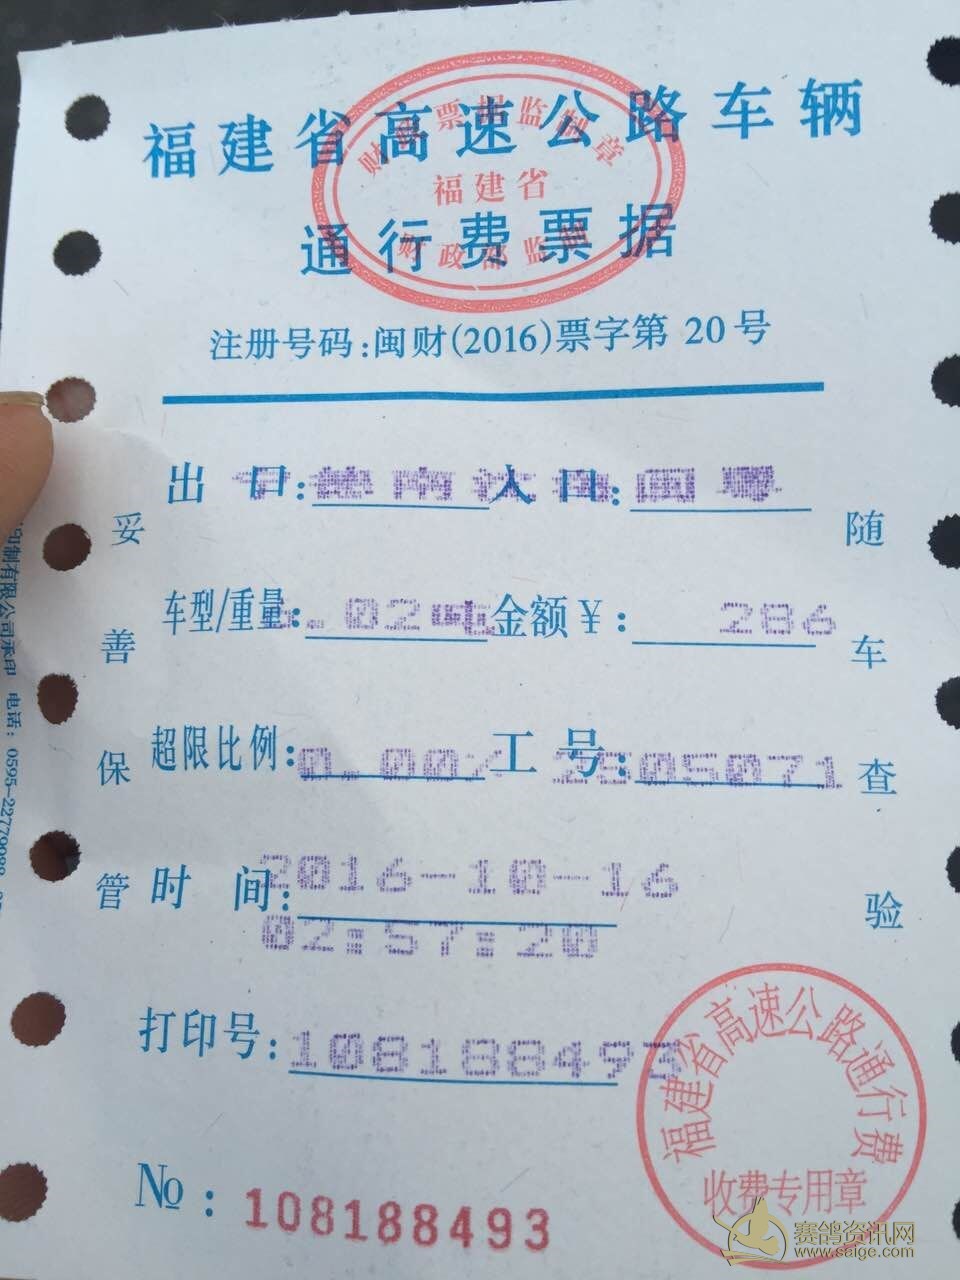 福建省高速公路车辆
通行费票据
财政票据监制章
福建省
财政部监制
注册号码:闽财(2016)票字第 20 号
出 口: 宁德南 入 口: 闽粤
车型/重量: 5.02吨 金额¥: 286
超限比例: 0.00% 工 号: 2605071
时 间: 2016-10-16
02:57:20
打印号: 108188493
№: 108188493
妥善保管
随车查验
福建省高速公路通行费
收费专用章
印制有限公司承印 电话: 0595-22779
赛鸽资讯网
www.saige.com